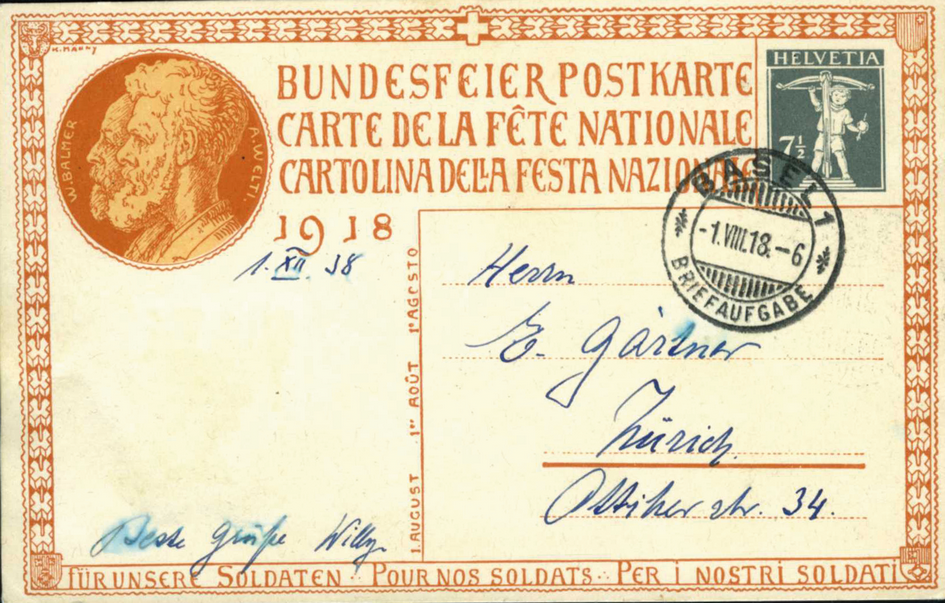 H. MARKY
BUNDESFEIER POSTKARTE
CARTE DE LA FÊTE NATIONALE
CARTOLINA DELLA FESTA NAZIONALE
1918
W. BALMER
A. WELTI.
HELVETIA
7½
BASEL 1
-1.VIII.18.-6
BRIEFAUFGABE
1. XII. 38
Herrn
E. Gärtner
Zürich
str. 34.
1. AUGUST 1er AOÛT 1° AGOSTO
Beste Grüße Willy
FÜR UNSERE SOLDATEN · POUR NOS SOLDATS · PER I NOSTRI SOLDATI